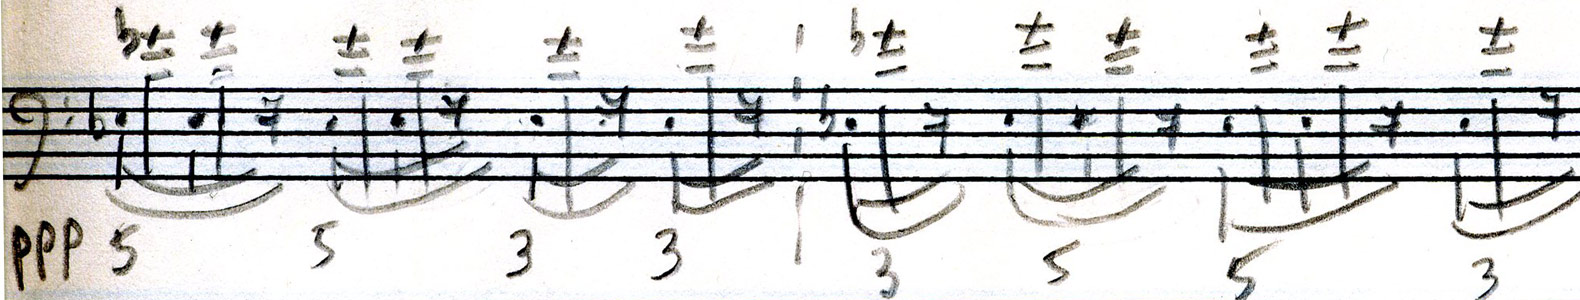 ppp 5 5 3 3 3 5 5 3